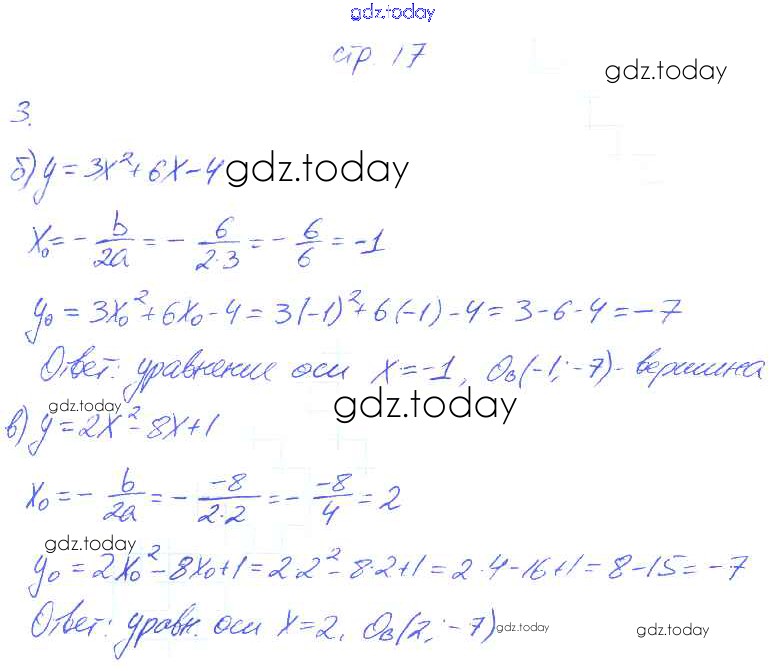 gdz.today
стр. 17
gdz.today
3.
б) y = 3x² + 6x - 4 gdz.today
x₀ = - b/2a = - 6/2·3 = - 6/6 = -1
y₀ = 3x₀² + 6x₀ - 4 = 3(-1)² + 6(-1) - 4 = 3 - 6 - 4 = -7
Ответ: уравнение оси x = -1, Oв(-1; -7) - вершина
gdz.today gdz.today
в) y = 2x² - 8x + 1
x₀ = - b/2a = - -8/2·2 = - -8/4 = 2
gdz.today
y₀ = 2x₀² - 8x₀ + 1 = 2·2² - 8·2 + 1 = 2·4 - 16 + 1 = 8 - 15 = -7
Ответ: уравн. оси x = 2, Oв(2; -7) gdz.today gdz.today